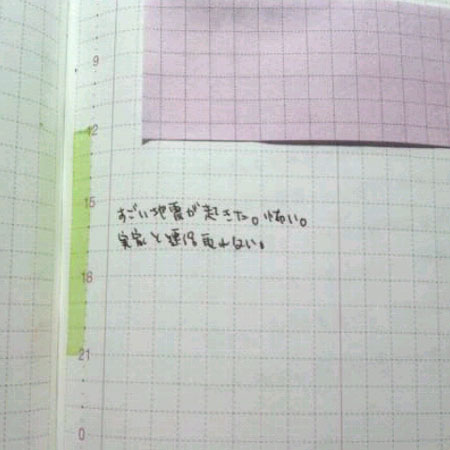 9
12
15
すごい地震が起きた。怖い。
実家と連絡取れない。
18
21
0